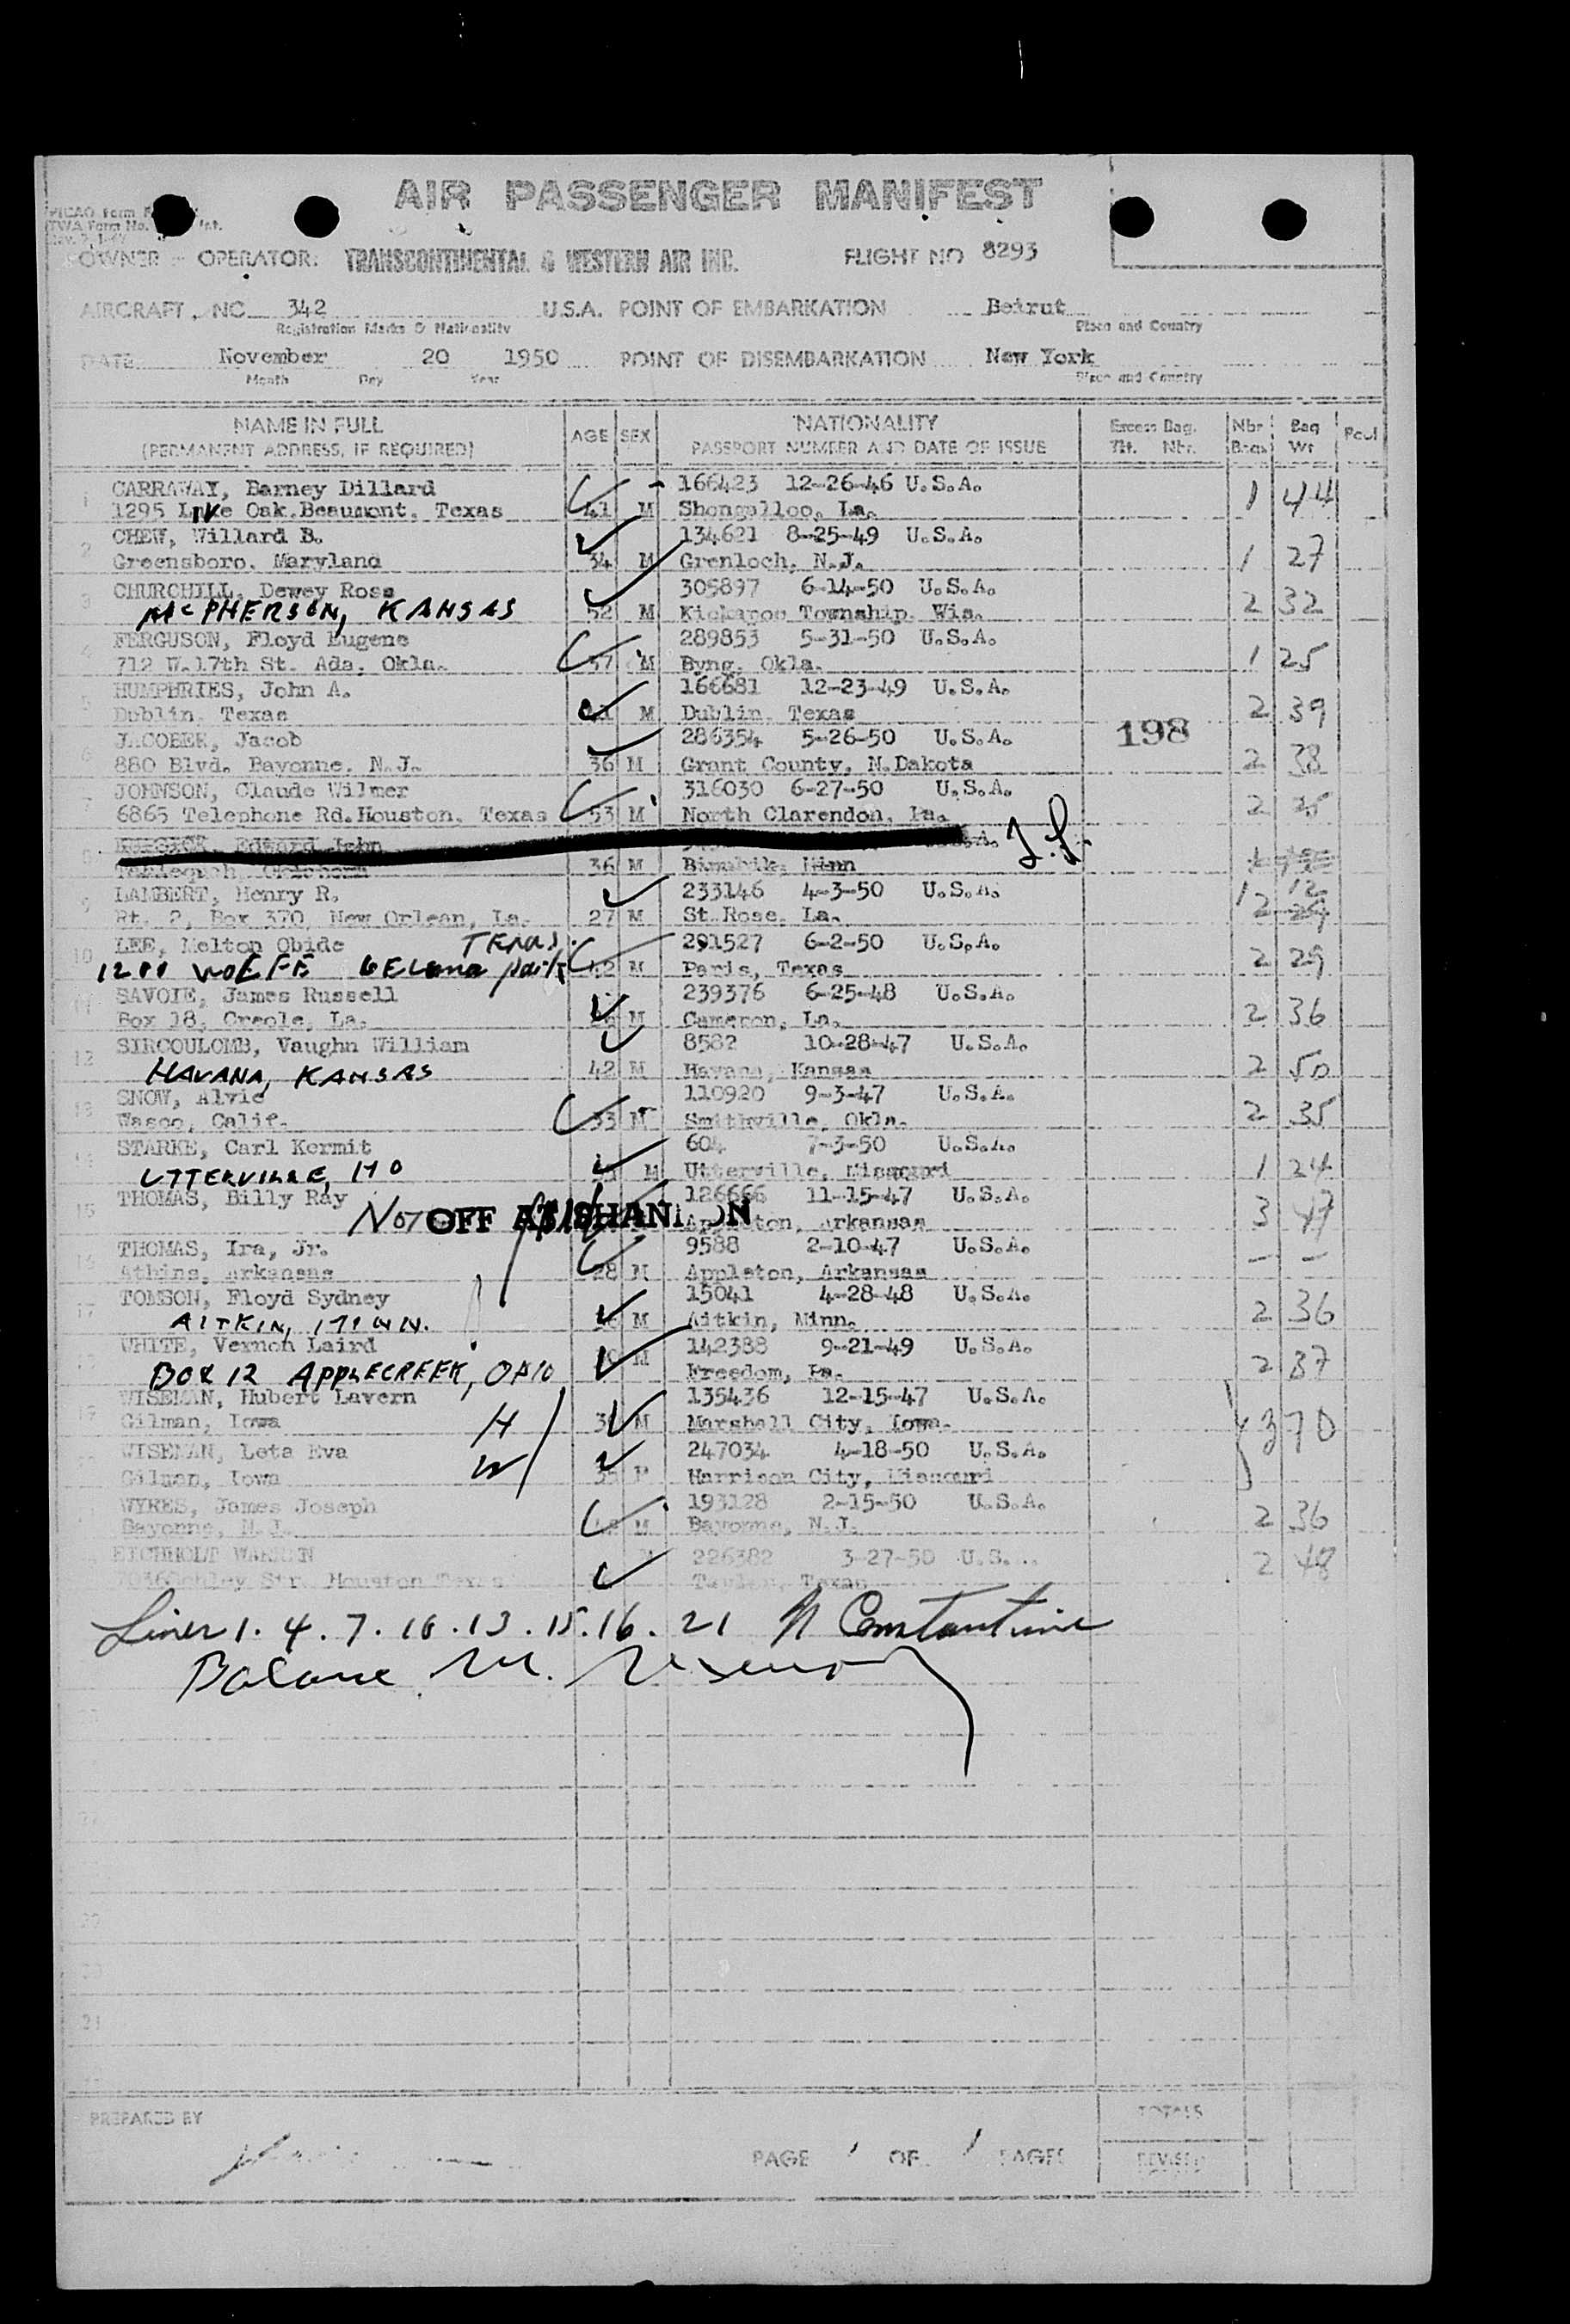 AIR PASSENGER MANIFEST
OWNER - OPERATOR: TRANSCONTINENTAL & WESTERN AIR INC. FLIGHT NO 8293
AIRCRAFT, NC 342 U.S.A. POINT OF EMBARKATION Beirut
Registration Marks & Nationality Place and Country
DATE November 20 1950 POINT OF DISEMBARKATION New York
Month Day Year Place and Country
NAME IN FULL AGE SEX NATIONALITY Excess Bag. Nbr Bag
(PERMANENT ADDRESS, IF REQUIRED) PASSPORT NUMBER AND DATE OF ISSUE Tkt. Nbr. Bags Wt
1 CARRAWAY, Barney Dillard 166423 12-26-46 U.S.A.
1295 Oak.Beaumont, Texas 41 M Shongalloo, La. 1 44
2 CHEW, Willard B. 134621 8-25-49 U.S.A.
Greensboro, Maryland 34 M Grenloch, N.J. 1 27
3 CHURCHILL, Dewey Ross 305897 6-14-50 U.S.A.
McPHERSON, KANSAS 52 M Kickapoo Township, Wis. 2 32
4 FERGUSON, Floyd Eugene 289853 5-31-50 U.S.A.
712 W.17th St. Ada, Okla. 37 M Byng, Okla. 1 25
5 HUMPHRIES, John A. 166681 12-23-49 U.S.A.
Dublin, Texas M Dublin, Texas 2 39
6 JACOBER, Jacob 286354 5-26-50 U.S.A. 198
880 Blvd. Bayonne, N.J. 36 M Grant County, N.Dakota 2 38
7 JOHNSON, Claude Wilmer 316030 6-27-50 U.S.A.
6865 Telephone Rd.Houston, Texas 53 M North Clarendon, Pa. 2
Edward John
36 M Minn
9 LAMBERT, Henry R. 233146 4-3-50 U.S.A. 1 12
Rt. 2, Box 370, New Orlean, La. 27 M St.Rose, La. 2
10 LEE, Melton Obide TEXAS. 291527 6-2-50 U.S.A.
1200 42 M Paris, Texas 2 29
11 SAVOIE, James Russell 239376 6-25-48 U.S.A.
Box 18, Creole, La. M Cameron, La. 2 36
12 SIRCOULOMB, Vaughn William 8582 10-28-47 U.S.A.
HAVANA, KANSAS 42 M Havana, Kansas 2 50
13 SNOW, Alvie 110920 9-3-47 U.S.A.
Wasco, Calif. 33 M Smithville, Okla. 2 35
14 STARKE, Carl Kermit 604 7-3-50 U.S.A.
UTTERVILLE, MO M Utterville, Missouri 1 24
15 THOMAS, Billy Ray 126666 11-15-47 U.S.A.
NOT OFF AT SHANNON Appleton, Arkansas 3 47
16 THOMAS, Ira, Jr. 9588 2-10-47 U.S.A.
Athins, Arkansas 28 M Appleton, Arkansas - -
17 TOMSON, Floyd Sydney 15041 4-28-48 U.S.A.
AITKIN, MINN. M Aitkin, Minn. 2 36
WHITE, Vernon Laird 142388 9-21-49 U.S.A.
BOX 12 APPLECREEK, OHIO M Freedom, Pa. 2 37
19 WISEMAN, Hubert Lavern 135436 12-15-47 U.S.A.
Gilman, Iowa H M Marshall City, Iowa. 3 70
WISEMAN, Leta Eva 247034 4-18-50 U.S.A.
Gilman, Iowa W F Harrison City, Missouri
WYRES, James Joseph 193128 2-15-50 U.S.A.
Bayonne, N.J. M Bayonne, N.J. 2 36
EICHHOLT WARREN 226382 3-27-50 U.S.
Str. Houston Texas Taylor, Texas 2 48
Lines 1. 4. 7. 10. 13. 15. 16. 21 N Constantine
Balance
PREPARED BY TOTALS
PAGE 1 OF 1 PAGES